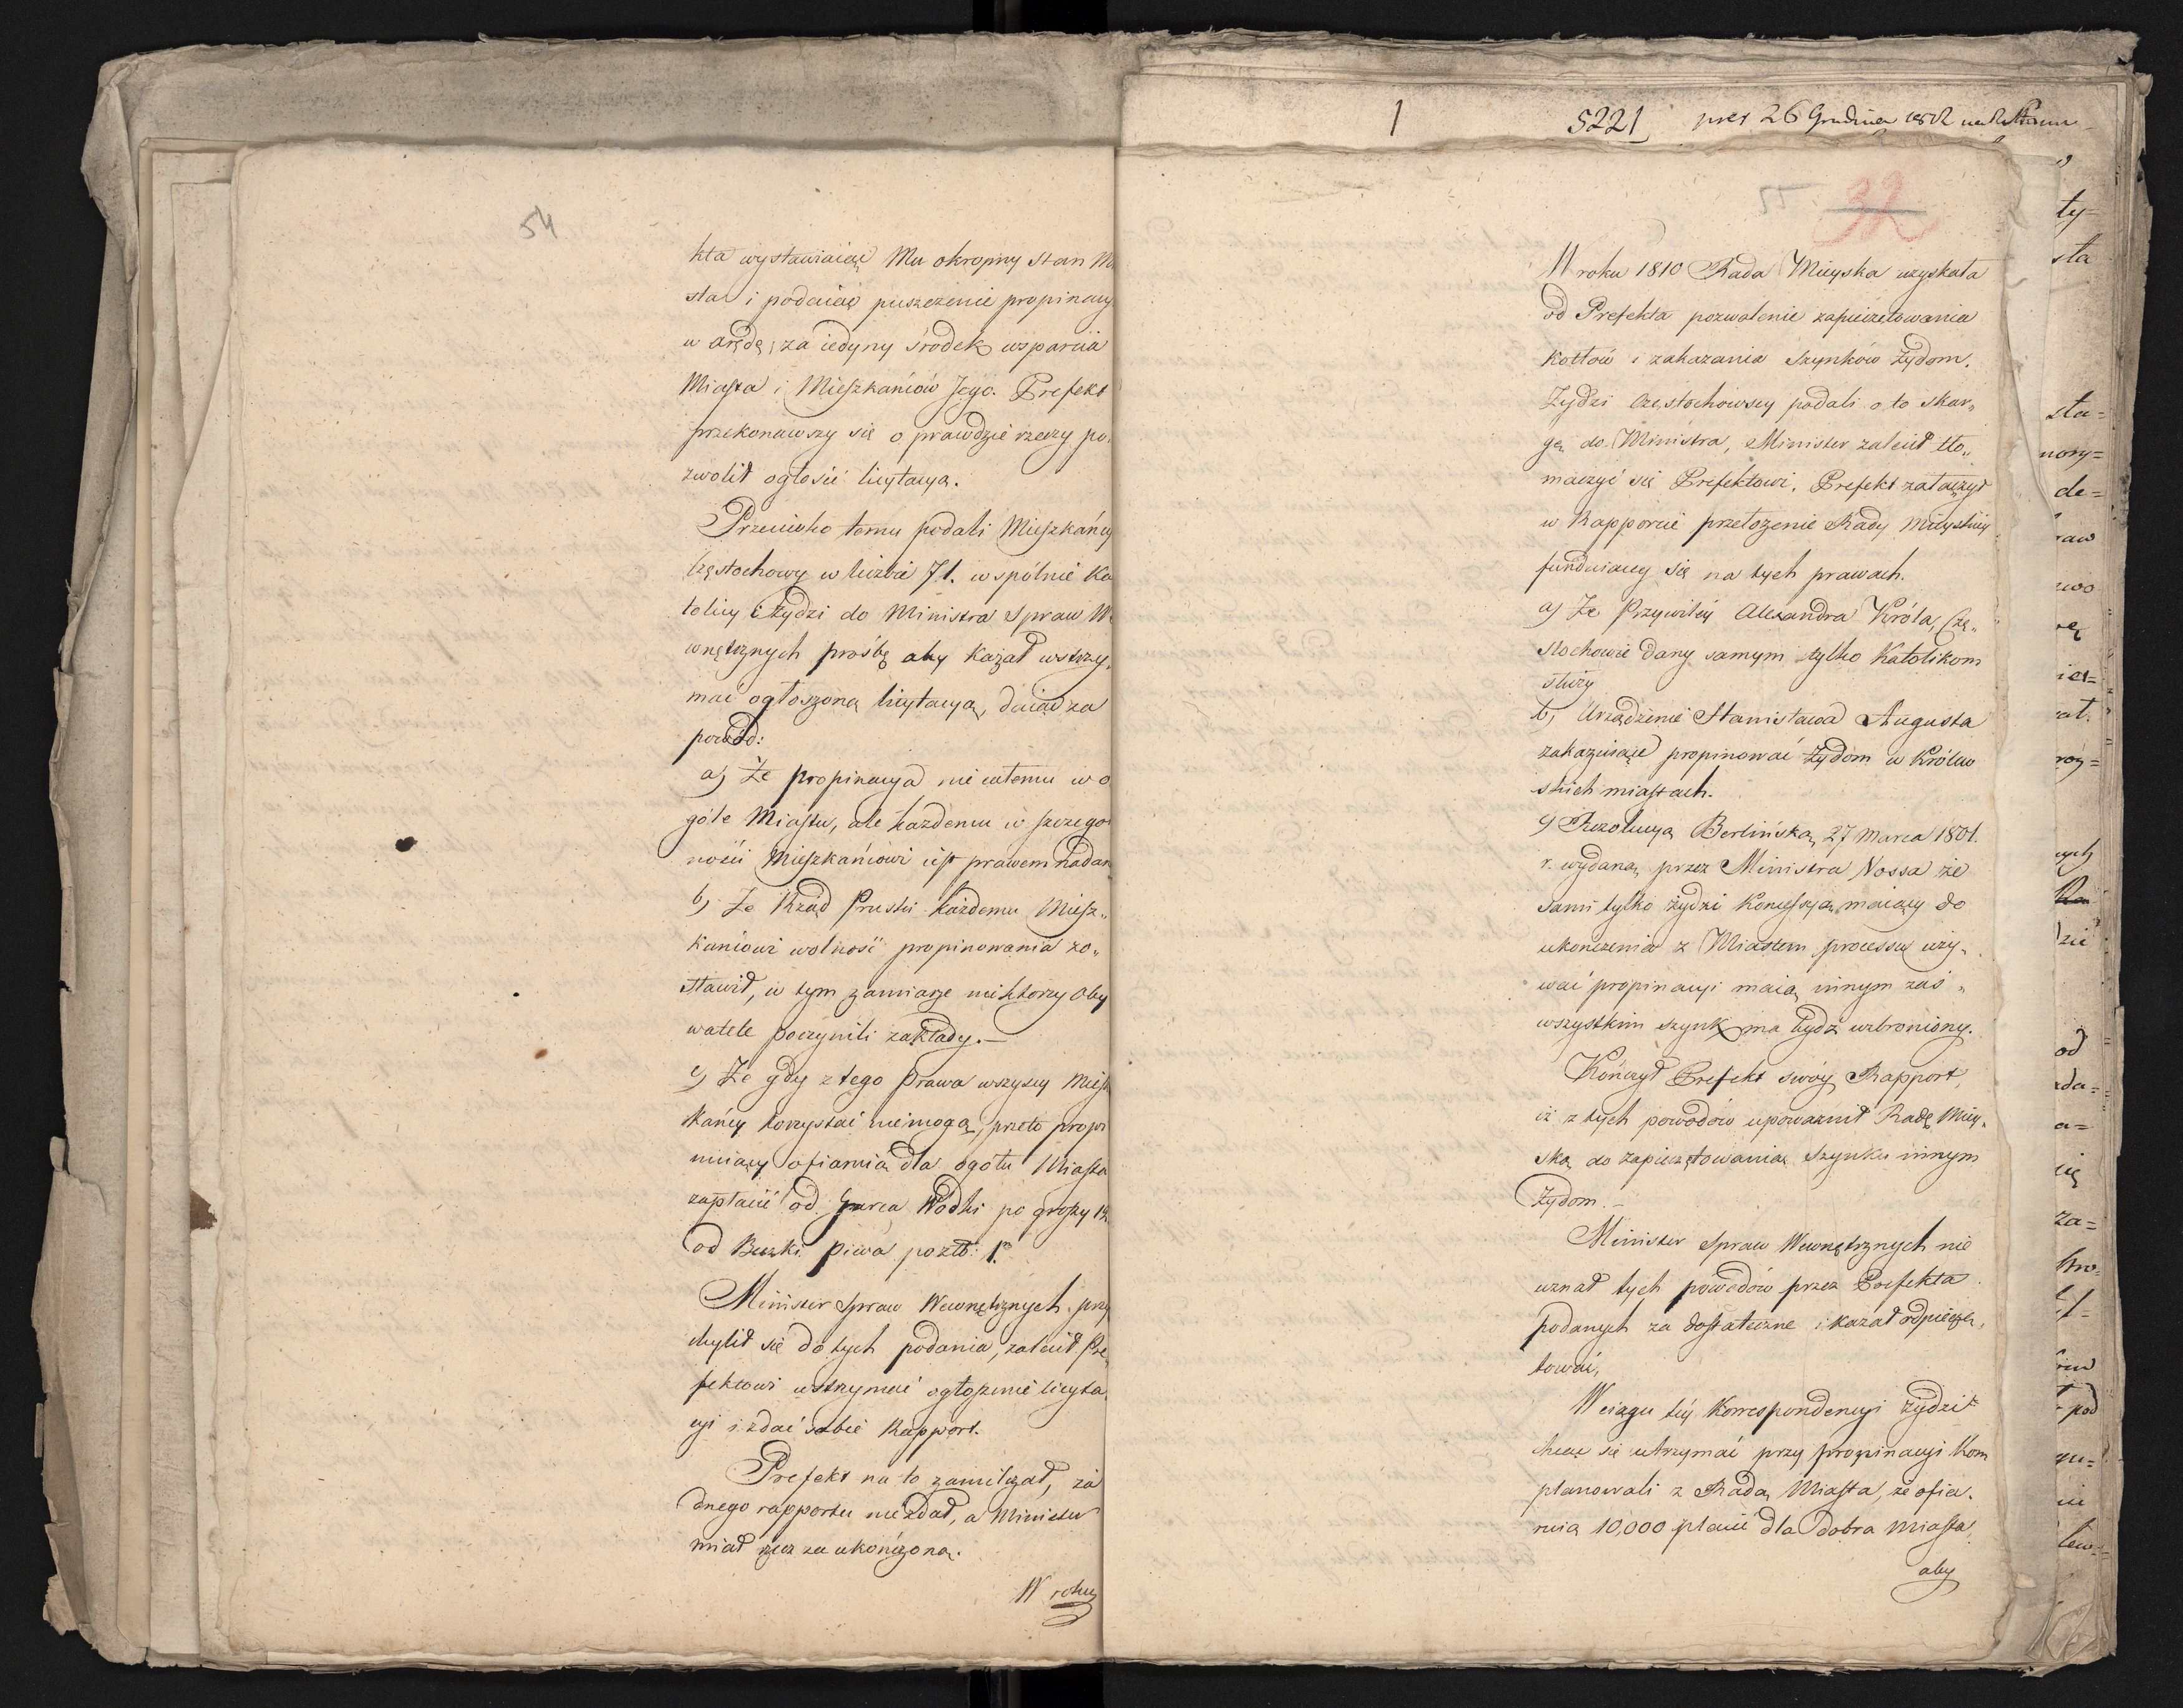 54
kta wystawiaiąc Mu okropny stan M
sta i podaiąc puszczenie propinacy
w arędę, za iedyny środek wsparcia
Miasta i Mieszkańców Jego. Prefekt
przekonawszy się o prawdzie rzeczy po
zwolił ogłosić licytacyą.
Przeciwko temu podali Mieszkańcy
Częstochowy w liczbie 71. wspólnie Ka
tolicy i Żydzi do Ministra Spraw We
wnętrznych prośbę aby kazał wstrzy,
mać ogłoszoną licytacyą, daiąc za
powód:
a) Że propinacya nie całemu w o
góle Miastu, ale każdemu w szczegól
ności Mieszkańcowi iest prawem nadan
b) Że Rząd Pruski każdemu Miesz„
kańcowi wolność propinowania zo„
stawił, w tym zamiarze niektorzy Oby
watele poczynili zakłady. —
c) Że gdy z tego prawa wszyscy Miesz
kańcy korzystać niemogą, przeto propi
nuiący ofiaruią dla ogółu Miasta
zapłacić od Garca Wodki po groszy 12
od Beczki piwa po złt: 1.
Minister Spraw Wewnętrznych przy
chylił się do tych podania, zalecił Pre
fektowi wstrzymać ogłoszenie licyta
cyi i zdać sobie Rapport.
Prefekt na to zamilczał, ża
dnego rapportu nie zdał, a Minister
miał rzecz za ukończoną.
W roku
1 5221 26 Grudnia
55 32
W roku 1810 Rada Mieyska uzyskała
od Prefekta pozwolenie zapieczętowania
Kotłów i zakazania Szynków Żydom.
Żydzi Częstochowscy podali o to skar„
gę do Ministra, Minister zalecił tło„
maczyć się Prefektowi, Prefekt załączył
w Rapporcie przełożenie Rady Mieyskiey
funduiącey się na tych prawach.
a) Że Przywiley Alexandra Króla, Czę„
stochowie dany samym tylko Katolikom
służy
b) Urządzenie Stanisława Augusta
zakazuiące propinować Żydom w Królew
skich miastach.
c) Rezolucyą Berlińską 27 Marca 1801.
r. wydaną przez Ministra Vossa że
sami tylko żydzi Koncessyą maiący do
ukończenia z Miastem processu uży„
wać propinacyi maią innym zaś „
wszystkim szynk ma bydź wzbroniony.
Kończył Prefekt swóy Rapport,
iż z tych powodów upoważnił Radę Miey„
ską do zapieczętowania Szynku innym
Żydom. —
Minister Spraw Wewnętrznych nie
uznał tych powodów przez Prefekta
podanych za dostateczne i kazał odpieczę„
tować.
W ciągu tey Korrespondencyi Żydzi
chcąc się utrzymać przy propinacyi Kom
planowali z Radą Miasta, że ofia„
ruią 10,000 płacić dla dobra Miasta
aby
ty=
sta
sta=
nory=
de=
raw
zwo
rę
ier=
rat.
roy=
od
a=
za=
pod